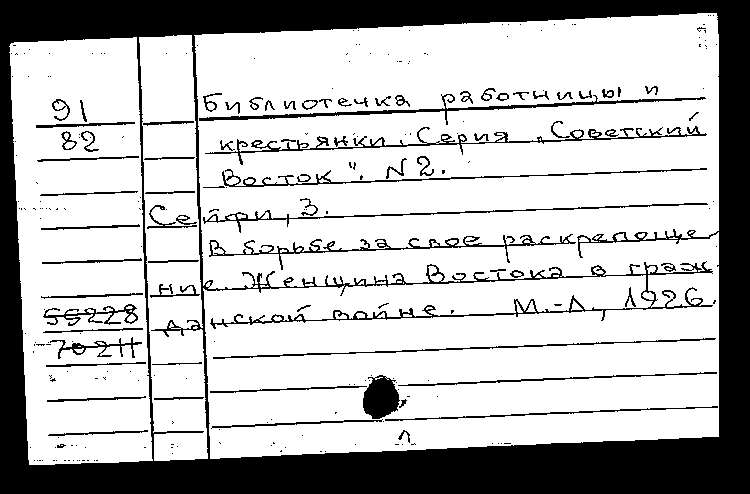 91 Библиотечка работницы и
82 крестьянки. Серия „Советский
Восток". N 2.
Сейфи, З.
В борьбе за свое раскрепоще
ние. Женщина Востока в граж
55228 данской войне. М.-Л., 1926.
70211
л